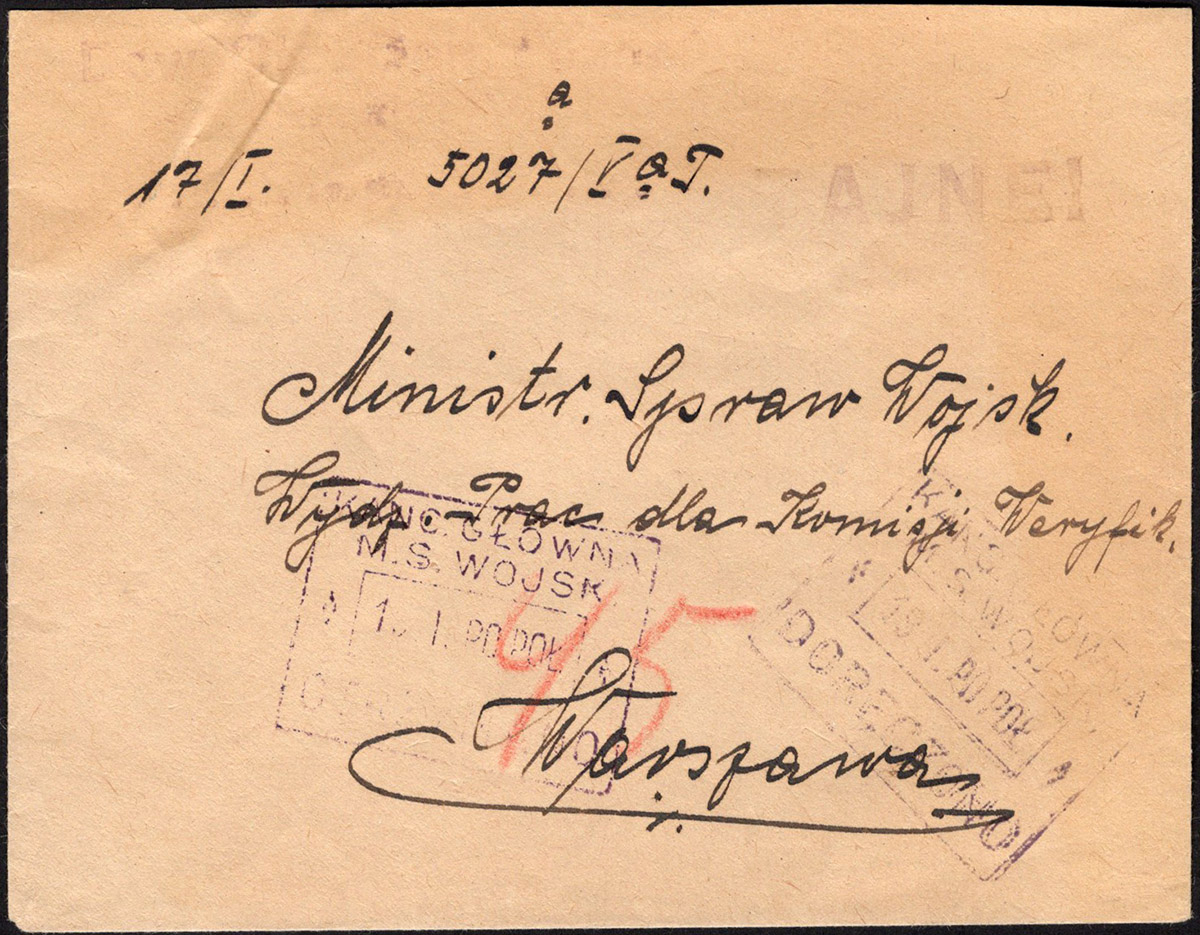 a
17/I. 5027/V a T.
Ministr. Spraw Wojsk.
Wydz. Prac dla Komisji Weryfik.
KANC. GŁÓWNA
M.S. WOJSK
I. PO POŁ
45
Warszawa
KANC GŁÓWNA
M.S. WOJSK
I. PO POŁ
DORĘCZONO